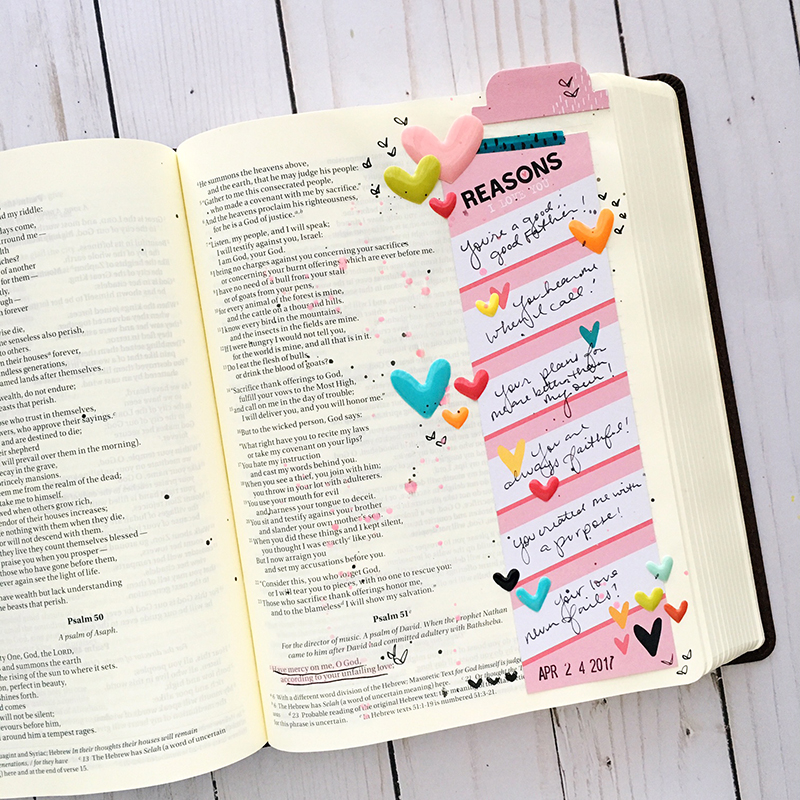 nd my riddle:
ys come,
rround me—
lth
hes?
of another
for them—
ough—
forever
ise die,
he senseless also perish,
to others.
n their houses forever,
endless generations,
amed lands after themselves.
wealth, do not endure;
easts that perish.
ose who trust in themselves,
wers, who approve their sayings.
and are destined to die;
ir shepherd
will prevail over them in the morning).
ecay in the grave,
rincely mansions.
eem me from the realm of the dead;
take me to himself.
wed when others grow rich,
endor of their houses increases;
e nothing with them when they die,
or will not descend with them.
they live they count themselves blessed—
praise you when you prosper—
those who have gone before them,
ever again see the light of life.
have wealth but lack understanding
he beasts that perish.
Psalm 50
A psalm of Asaph.
ty One, God, the LORD,
and summons the earth
rising of the sun to where it sets.
on, perfect in beauty,
shines forth.
d comes
will not be silent;
evours before him,
around him a tempest rages.
uagint and Syriac; Hebrew In their thoughts their houses will remain
generations, / for they have c 13 The Hebrew has Selah (a word of uncertain
) here and at the end of verse 15.
4 He summons the heavens above,
and the earth, that he may judge his people:
5 "Gather to me this consecrated people,
who made a covenant with me by sacrifice."
6 And the heavens proclaim his righteousness,
for he is a God of justice.
7 "Listen, my people, and I will speak;
I will testify against you, Israel:
I am God, your God.
8 I bring no charges against you concerning your sacrifices
or concerning your burnt offerings, which are ever before me.
9 I have no need of a bull from your stall
or of goats from your pens,
10 for every animal of the forest is mine,
and the cattle on a thousand hills.
11 I know every bird in the mountains,
and the insects in the fields are mine.
12 If I were hungry I would not tell you,
for the world is mine, and all that is in it.
13 Do I eat the flesh of bulls
or drink the blood of goats?
14 "Sacrifice thank offerings to God,
fulfill your vows to the Most High,
15 and call on me in the day of trouble;
I will deliver you, and you will honor me."
16 But to the wicked person, God says:
"What right have you to recite my laws
or take my covenant on your lips?
17 You hate my instruction
and cast my words behind you.
18 When you see a thief, you join with him;
you throw in your lot with adulterers.
19 You use your mouth for evil
and harness your tongue to deceit.
20 You sit and testify against your brother
and slander your own mother's son.
21 When you did these things and I kept silent,
you thought I was exactly like you.
But I now arraign you
and set my accusations before you.
22 "Consider this, you who forget God,
or I will tear you to pieces, with no one to rescue you:
23 Those who sacrifice thank offerings honor me,
and to the blameless I will show my salvation."
Psalm 51
For the director of music. A psalm of David. When the prophet Nathan
came to him after David had committed adultery with Bathsheba.
1 Have mercy on me, O God,
according to your unfailing love;
a 6 With a different word division of the Hebrew; Masoretic Text for God himself is judge
b 6 The Hebrew has Selah (a word of uncertain meaning) here. c 21 Or thought the
d 23 Probable reading of the original Hebrew text; the meaning of
for this phrase is uncertain. In Hebrew texts 51:1-19 is numbered 51:3-21.
REASONS
I LOVE YOU
You're a good
good Father!
You hear me
when I call!
Your plans for
me are better than
my own!
You are
always faithful!
You created me with
a purpose!
Your love
never fails!
APR 24 2017